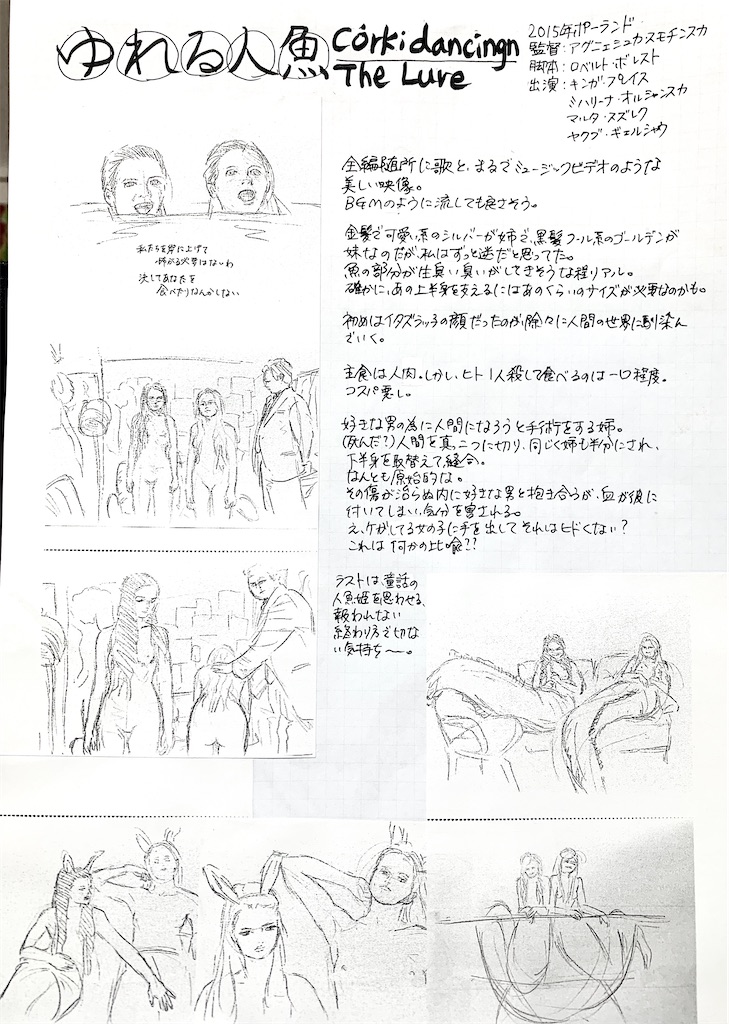 ゆれる人魚
Córki dancingn
The Lure
2015年ポーランド
監督：アグニェシュカ・スモチンスカ
脚本：ロベルト・ボレスト
出演：キンガ・プレイス
ミハリーナ・オルシャンスカ
マルタ・スズレク
ヤクブ・ギェルシャウ
全編随所に歌と、まるでミュージックビデオのような
美しい映像。
BGMのように流しても良さそう。
金髪で可愛い系のシルバーが姉で、黒髪クール系のゴールデンが
妹なのだが、私はずっと逆だと思ってた。
魚の部分が生臭い臭いがしてきそうな程リアル。
確かに、あの上半身を支えるにはあのくらいのサイズが必要なのかも。
初めはイタズラッ子の顔だったのが、除々に人間の世界に馴染ん
でいく。
主食は人肉。しかし、ヒト1人殺して食べるのは一口程度。
コスパ悪し。
好きな男の為に人間になろうと手術をする姉。
(死んだ？)人間を真っ二つに切り、同じく姉も半分にされ、
下半身を取替えて縫合。
なんとも原始的な。
その傷が治らぬ内に好きな男と抱き合うが、血が彼に
付いてしまい、気分を害される。
え、ケガしてる女の子に手を出してそれはヒドくない？
これは何かの比喩??
私たちを岸に上げて
怖がる必要はないわ
決してあなたを
食べたりなんかしない
ラストは、童話の
人魚姫を思わせる、
報われない
終わり方で切な
い気持ち〜。